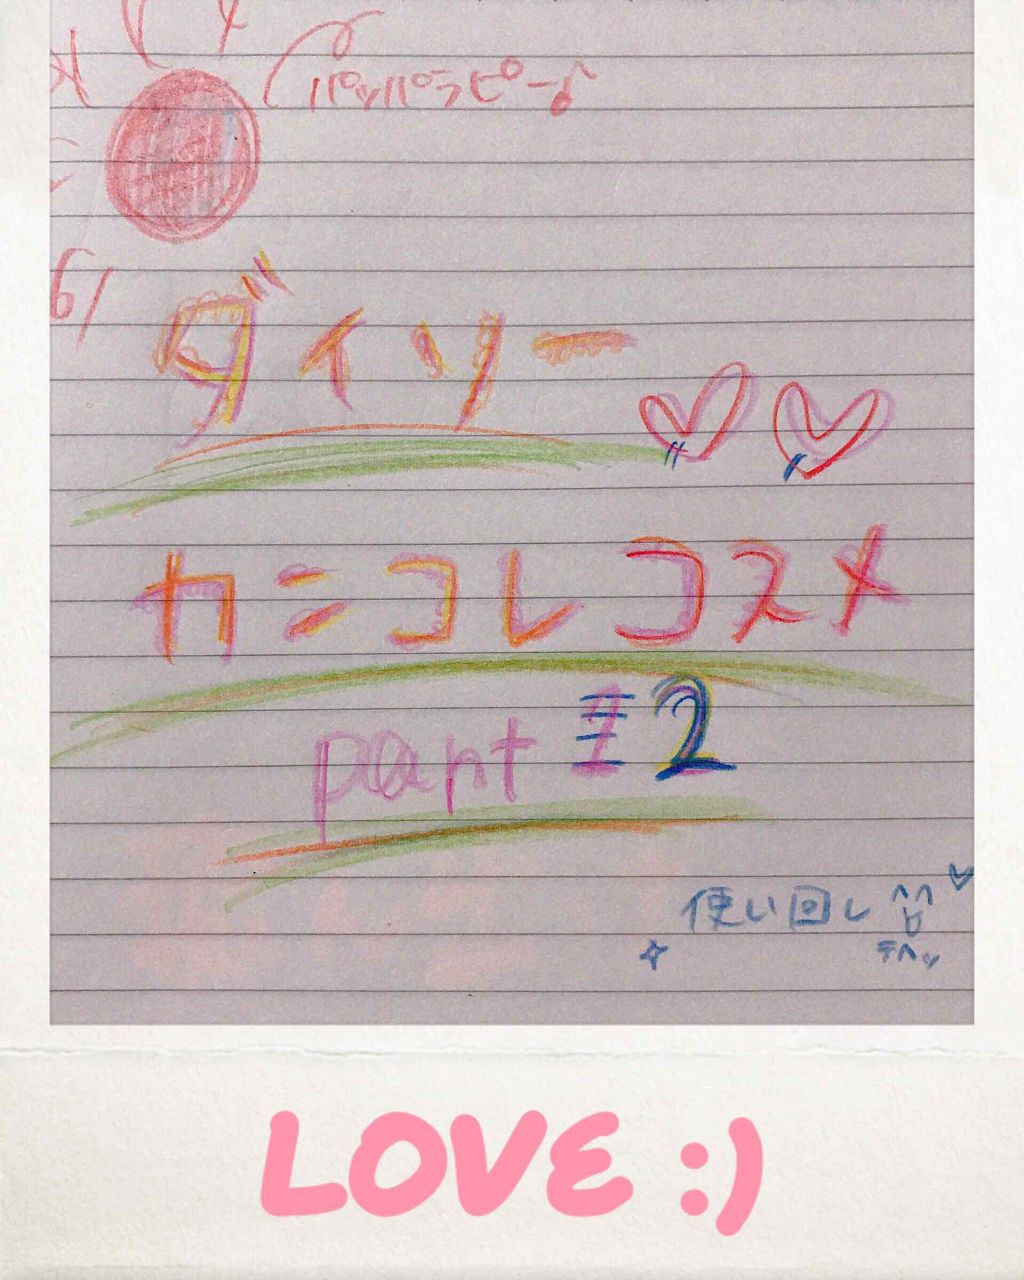 パッパラピー♪
ダイソー
カンコレコスメ
part 2
使い回し
テヘッ
LOVE :)